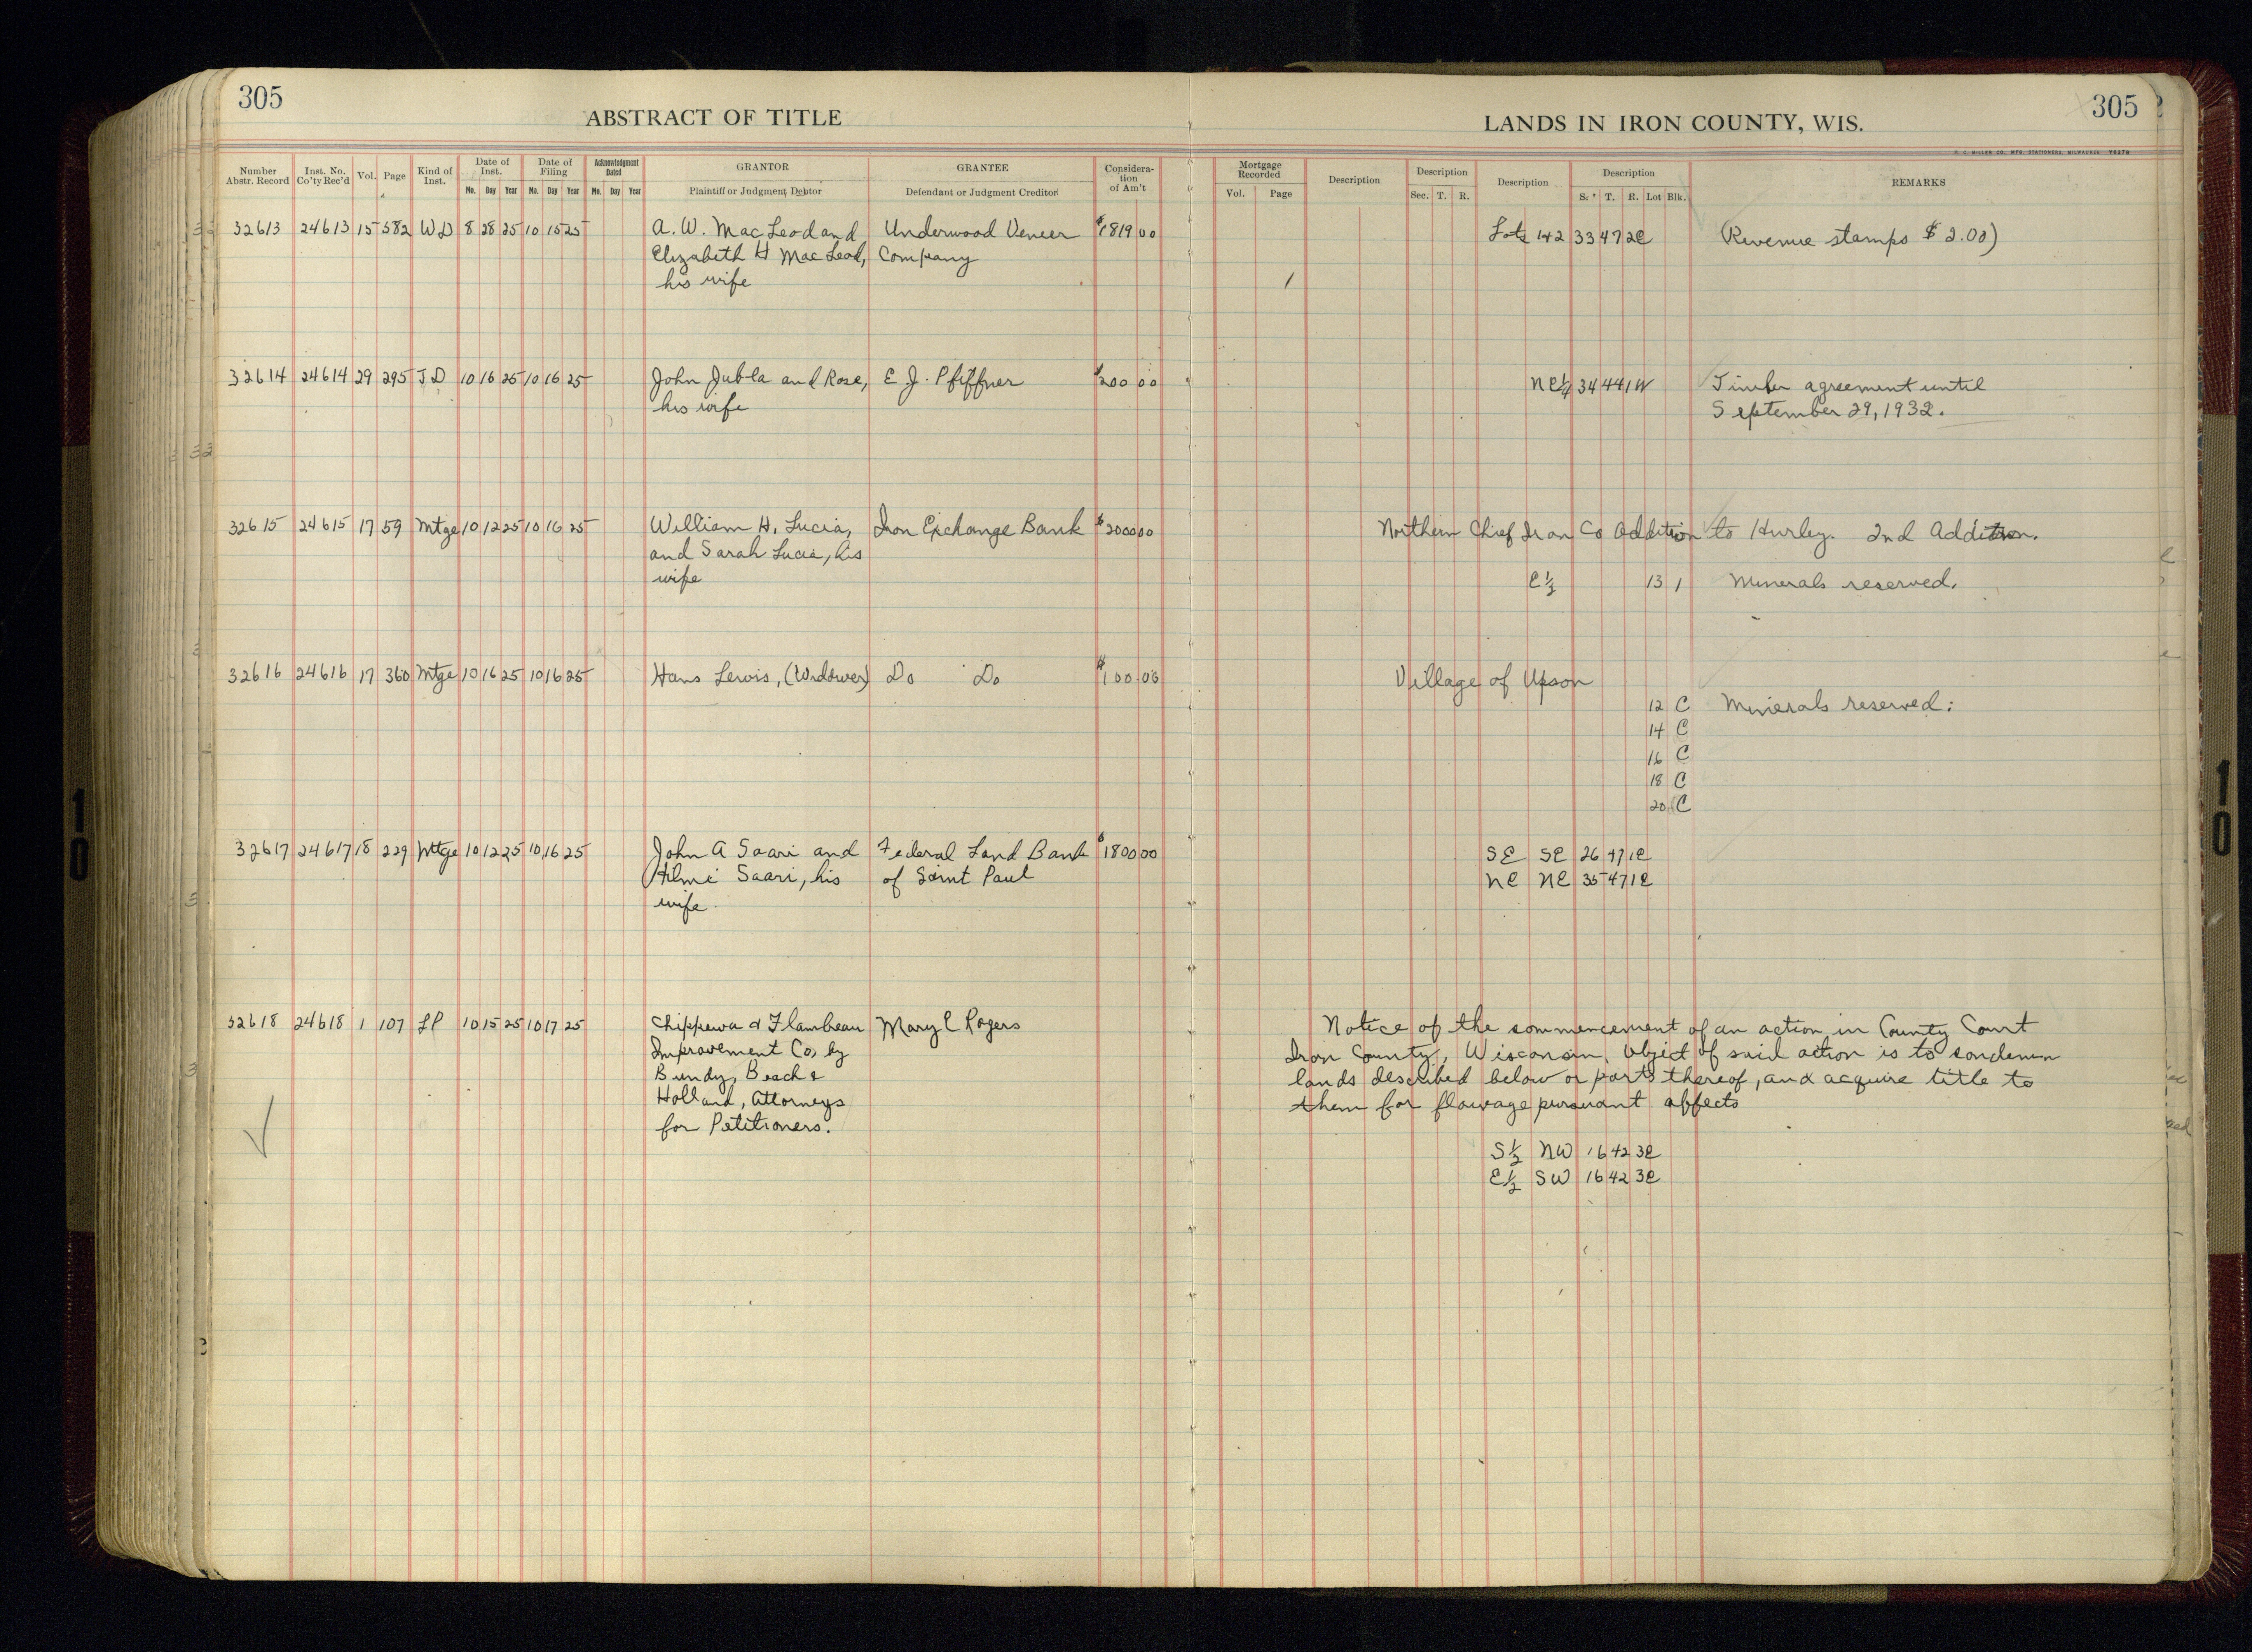 305
ABSTRACT OF TITLE
LANDS IN IRON COUNTY, WIS.
305
H. C. MILLER CO., MFG. STATIONERS, MILWAUKEE
Number Abstr. Record | Inst. No. Co'ty Rec'd | Vol. | Page | Kind of Inst. | Date of Inst. Mo. Day Year | Date of Filing Mo. Day Year | Acknowledgment Dated Mo. Day Year | GRANTOR Plaintiff or Judgment Debtor | GRANTEE Defendant or Judgment Creditor | Consideration of Am't | Mortgage Recorded Vol. Page | Description | Description Sec. T. R. | Description | Description S. T. R. Lot Blk. | REMARKS
32613 24613 15 582 WD 8 28 25 10 15 25 A. W. MacLeod and Underwood Veneer $1819 00 Lots 1+2 33 47 2E (Revenue stamps $2.00)
Elizabeth H MacLeod, Company
his wife
32614 24614 29 295 TD 10 16 25 10 16 25 John Jubla and Rose, E J. Pfiffner $200 00 NE¼ 34 44 1W Timber agreement until
his wife September 29, 1932.
32615 24615 17 59 Mtge 10 12 25 10 16 25 William H. Lucia, Iron Exchange Bank $2000 00 Northern Chief Iron Co Addition to Hurley. 2nd Addition.
and Sarah Lucia, his
wife E½ 13 1 Minerals reserved.
32616 24616 17 360 Mtge 10 16 25 10 16 25 Hans Lewis, (Widower) Do Do $100 00 Village of Upson
12 C Minerals reserved:
14 C
16 C
18 C
20 C
32617 24617 18 229 Mtge 10 12 25 10 16 25 John A Saari and Federal Land Bank $1800 00 SE SE 26 47 1E
Hilmi Saari, his of Saint Paul NE NE 35 47 1E
wife
32618 24618 1 107 LP 10 15 25 10 17 25 Chippewa & Flambeau Mary E Rogers Notice of the commencement of an action in County Court
Improvement Co, by Iron County, Wisconsin. Object of said action is to condemn
Bundy, Beach & lands described below or parts thereof, and acquire title to
Holland, Attorneys them for flowage pursuant affects
for Petitioners.
S½ NW 16 42 3E
E½ SW 16 42 3E
10
10